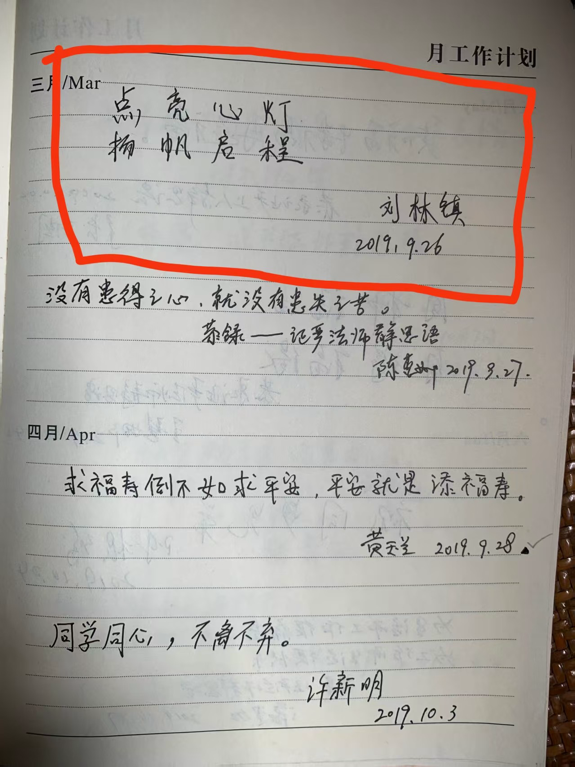 月工作计划
三月/Mar
点亮心灯
扬帆启程
刘林镇
2019.9.26
没有患得之心，就没有患失之苦。
恭录——证严法师静思语
陈惠 2019.9.27.
四月/Apr
求福寿倒不如求平安，平安就是添福寿。
黄天兰 2019.9.28
同学同心，不离不弃。
许新明
2019.10.3